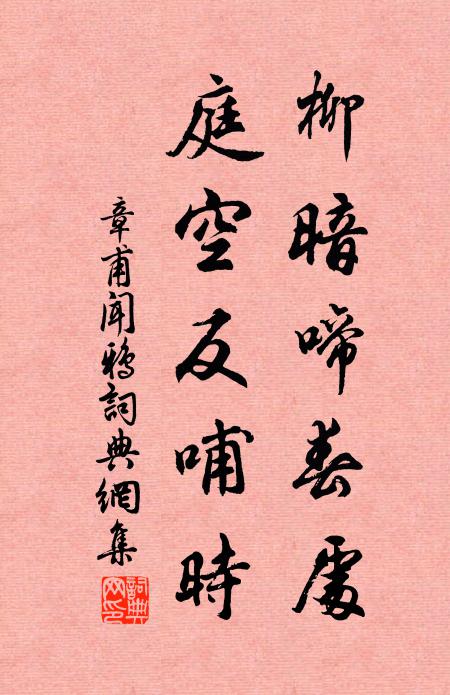 柳暗啼春處
庭空反哺時
章甫聞鴉詞典網集
詞典網印